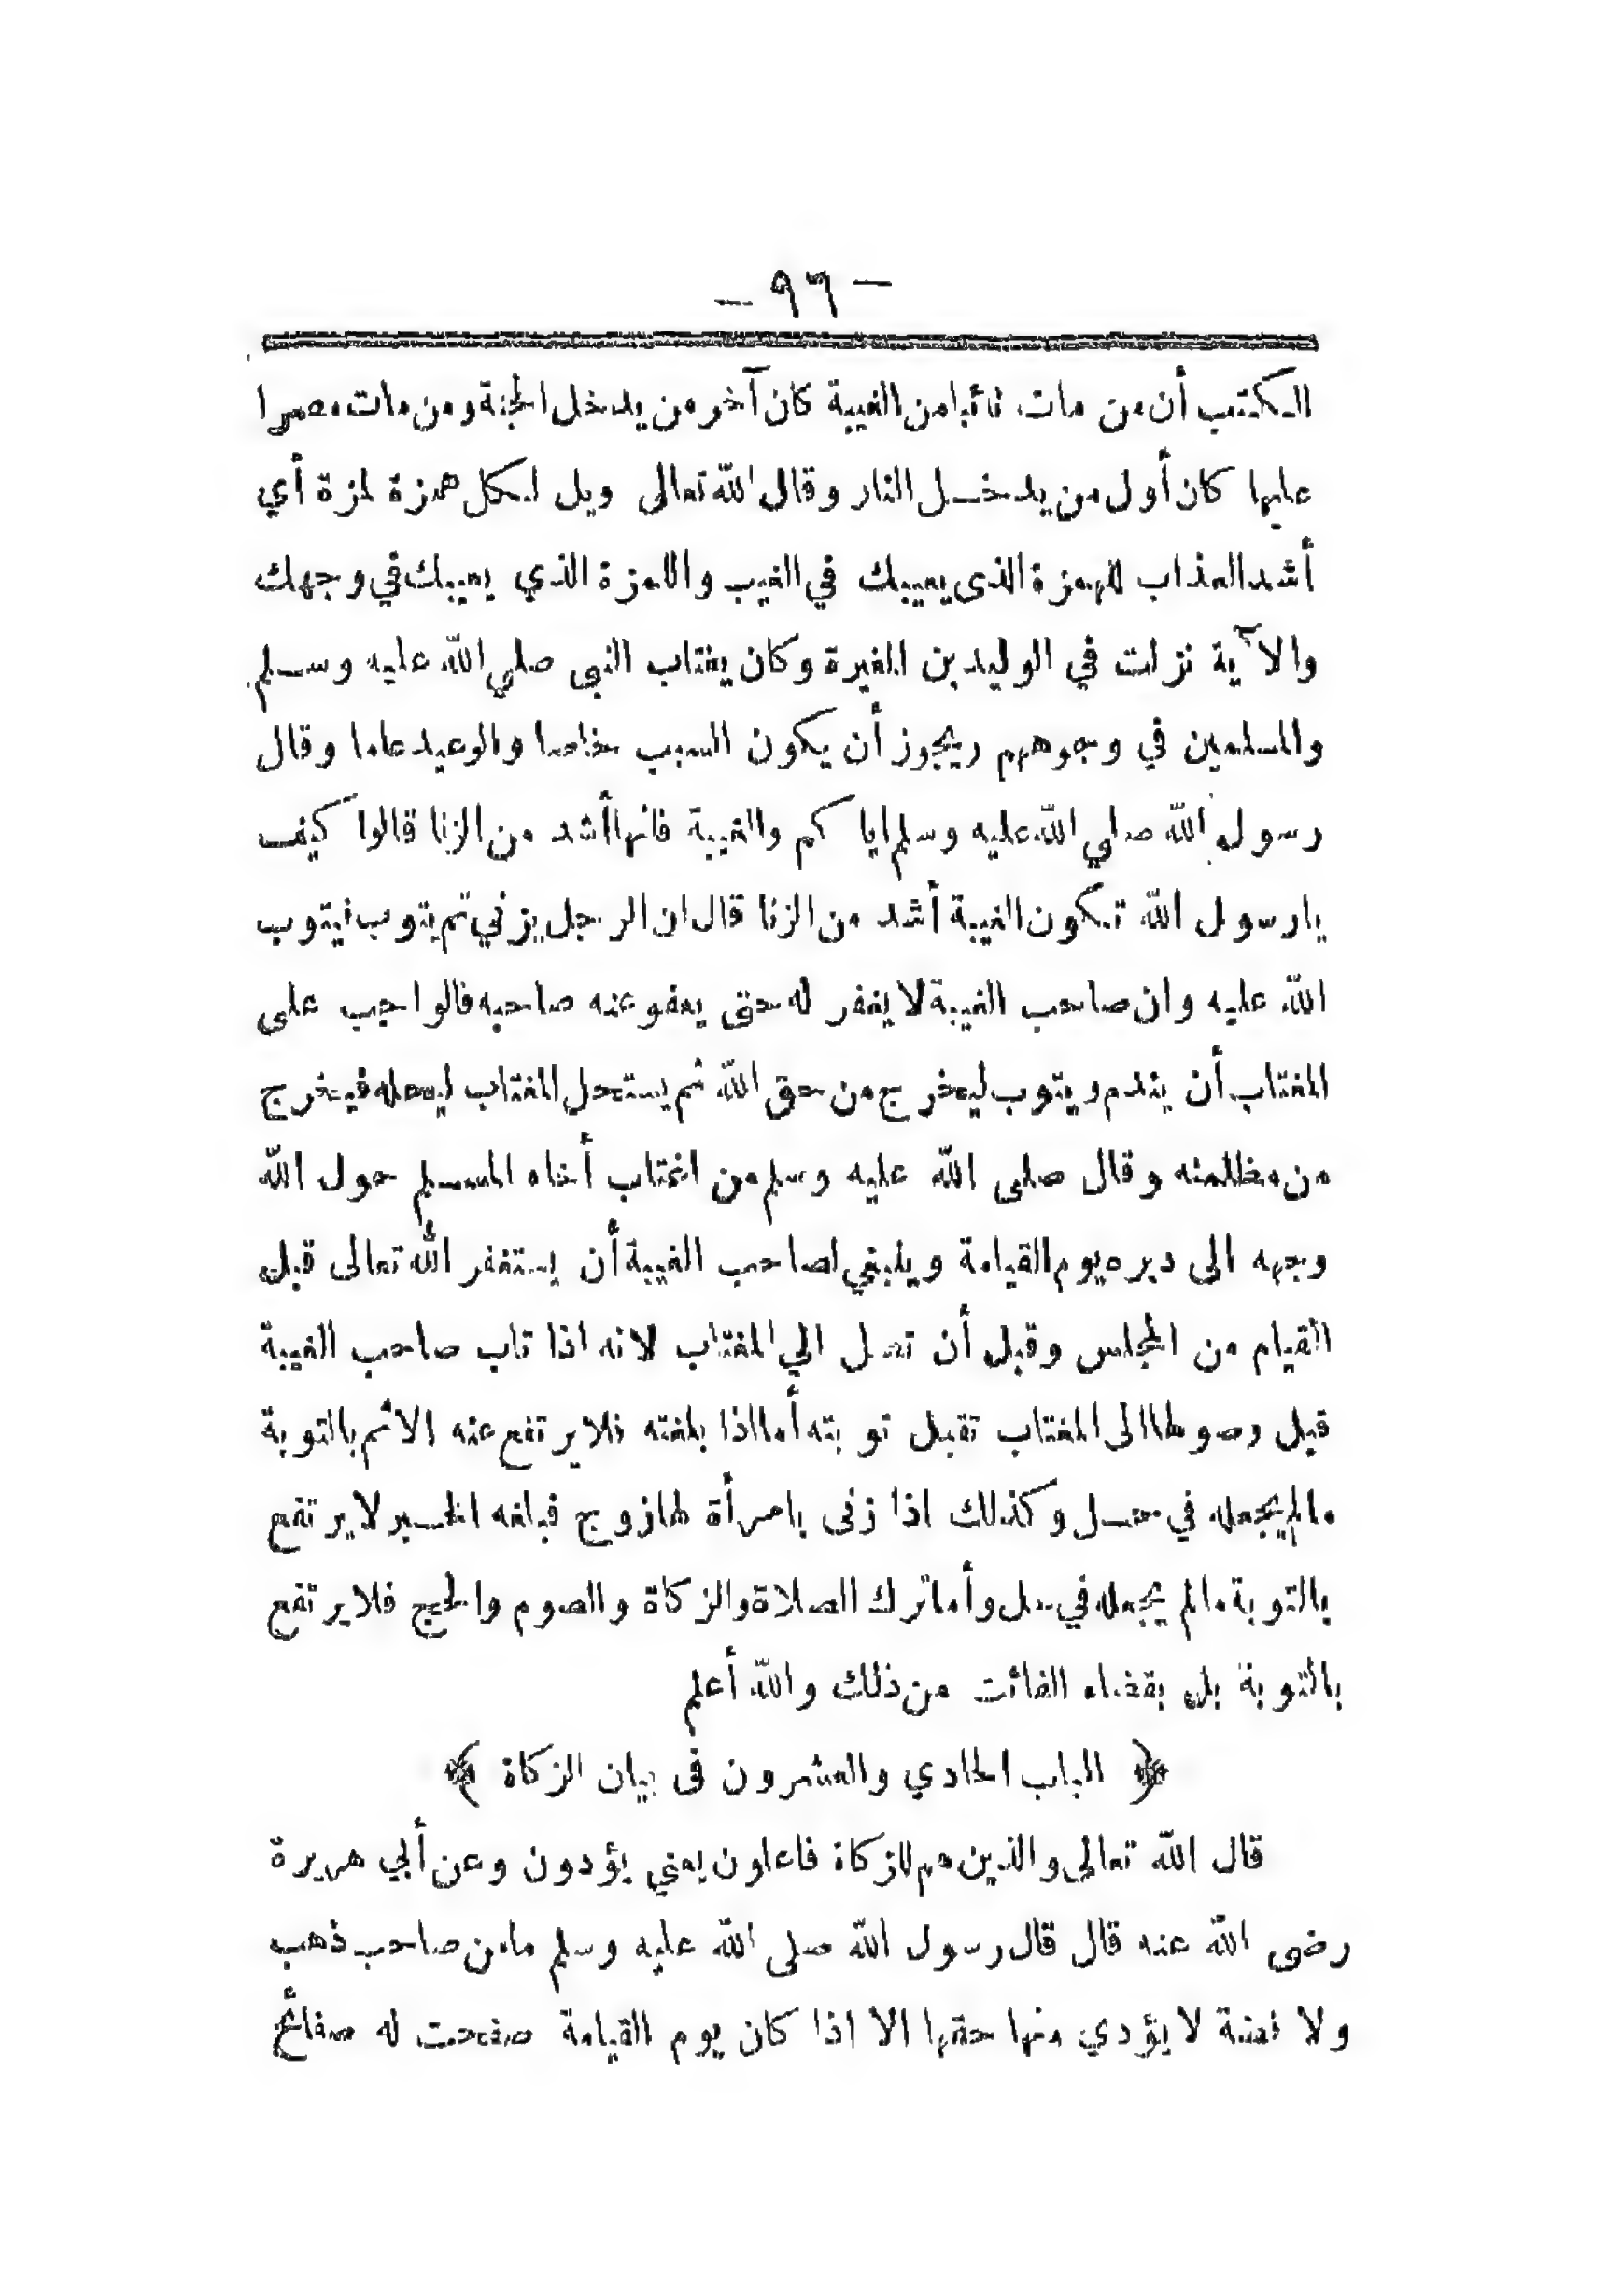 — ٩٦ —
الكتب أن من مات تائبا من الغيبة كان آخر من يدخل الجنة ومن مات مصرا
عليها كان أول من يدخل النار وقال الله تعالى ويل لكل همزة لمزة أي
أشد العذاب للهمزة الذى يعيبك في الغيب واللمزة الذي يعيبك في وجهك
والآية نزلت في الوليد بن المغيرة وكان يغتاب النبى صلي الله عليه وسلم
والمسلمين في وجوههم ويجوز أن يكون السبب خاصا والوعيد عاما وقال
رسول الله صلي الله عليه وسلم اياكم والغيبة فانها أشد من الزنا قالوا كيف
يارسول الله تكون الغيبة أشد من الزنا قال ان الرجل يزني ثم يتوب فيتوب
الله عليه وان صاحب الغيبة لا يغفر له حتى يعفو عنه صاحبه فالواجب على
المغتاب أن يندم ويتوب ليخرج من حق الله ثم يستحل المغتاب ليحله فيخرج
من مظلمته وقال صلى الله عليه وسلم من اغتاب أخاه المسلم حول الله
وجهه الى دبره يوم القيامة وينبغي لصاحب الغيبة أن يستغفر الله تعالى قبل
القيام من المجلس وقبل أن تصل الي المغتاب لانه اذا تاب صاحب الغيبة
قبل وصولها الى المغتاب تقبل توبته أما اذا بلغته فلا يرتفع عنه الاثم بالتوبة
مالم يجعله في حل وكذلك اذا زنى بامرأة لها زوج فبلغه الخبر لا يرتفع
بالتوبة مالم يجعله في حل وأما ترك الصلاة والزكاة والصوم والحج فلا يرتفع
بالتوبة بل بقضاء الفائت من ذلك والله أعلم
﴿ الباب الحادي والعشرون فى بيان الزكاة ﴾
قال الله تعالى والذين هم للزكاة فاعلون يعني يؤدون وعن أبي هريرة
رضى الله عنه قال قال رسول الله صلى الله عليه وسلم مامن صاحب ذهب
ولا فضة لا يؤدي منها حقها الا اذا كان يوم القيامة صفحت له صفائح